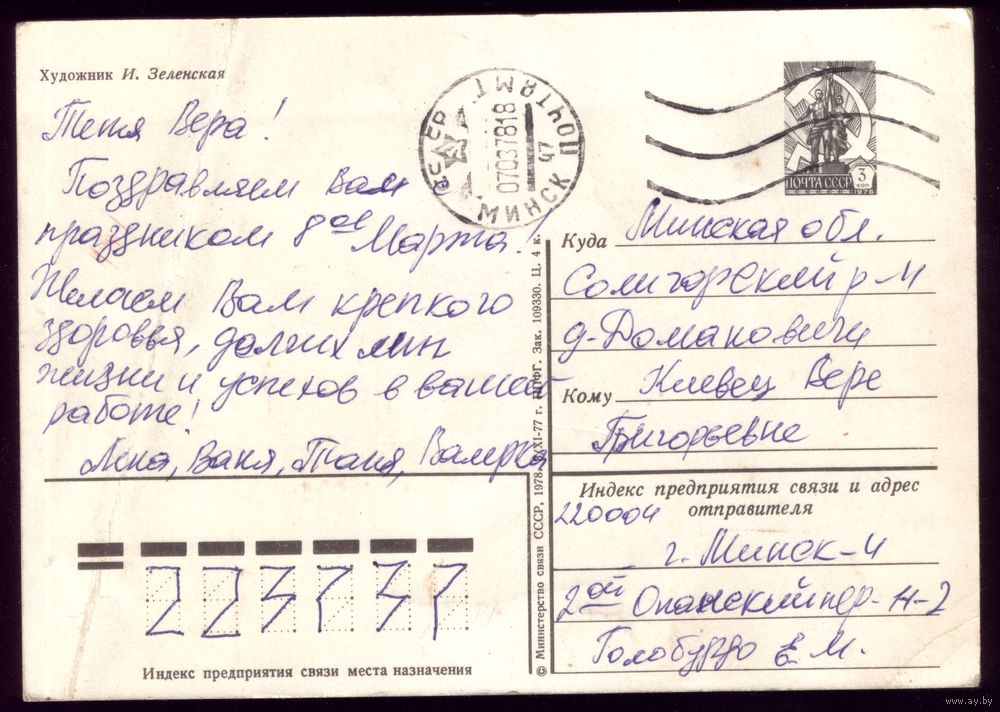 Художник И. Зеленская
Тетя Вера!
Поздравляем Вам
праздником 8ое Марта!
Желаем Вам крепкого
здоровья, долгих
жизни и успехов в вашей
работе!
Лена, Ваня, Таня, Валерка
ПОЧТАМТ
07037818
47
МИНСК
ПОЧТА СССР
3
КОП
1976
Куда Минская обл.
Солигорский р-н
д. Домановичи
Кому Клевец Вере
Григорьевне
© Министерство связи СССР, 1978. 8/XI-77 г. ППФГ. Зак. 109330. Ц. 4 к.
Индекс предприятия связи и адрес
отправителя
220004
г. Минск-4
2ой Опанский пер-Н-2
Голобурдо Е. М.
Индекс предприятия связи места назначения
www.ay.by